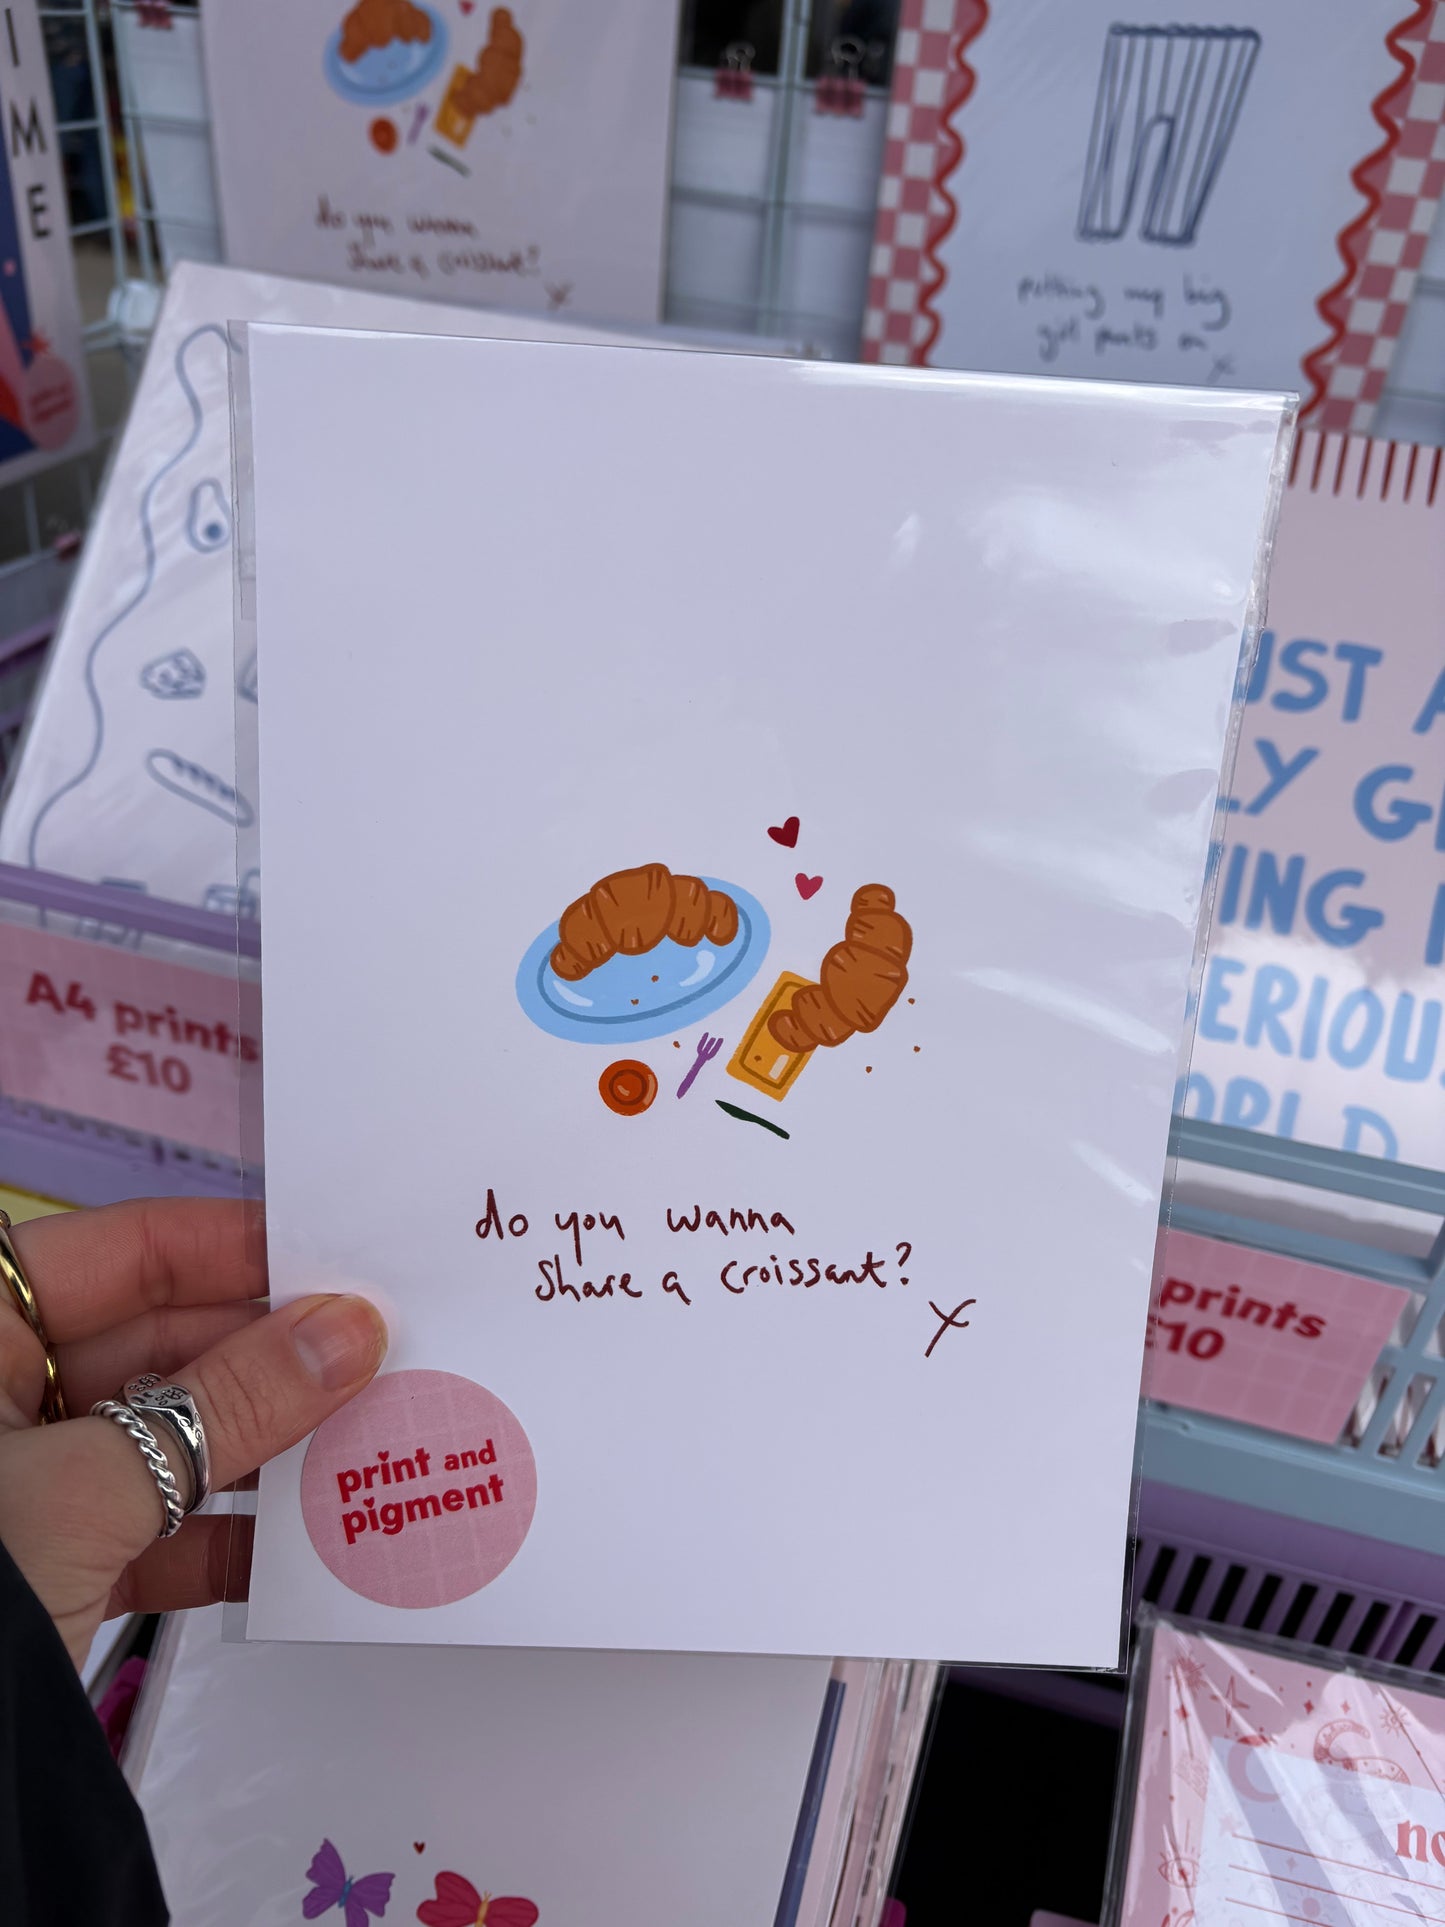 IME
do you wanna
share a croissant?
x
putting my big
girl pants on
x
A4 prints
£10
do you wanna
share a croissant?
x
print and
pigment
UST A
LY G
ING
ERIOU
ORLD
prints
£10
no